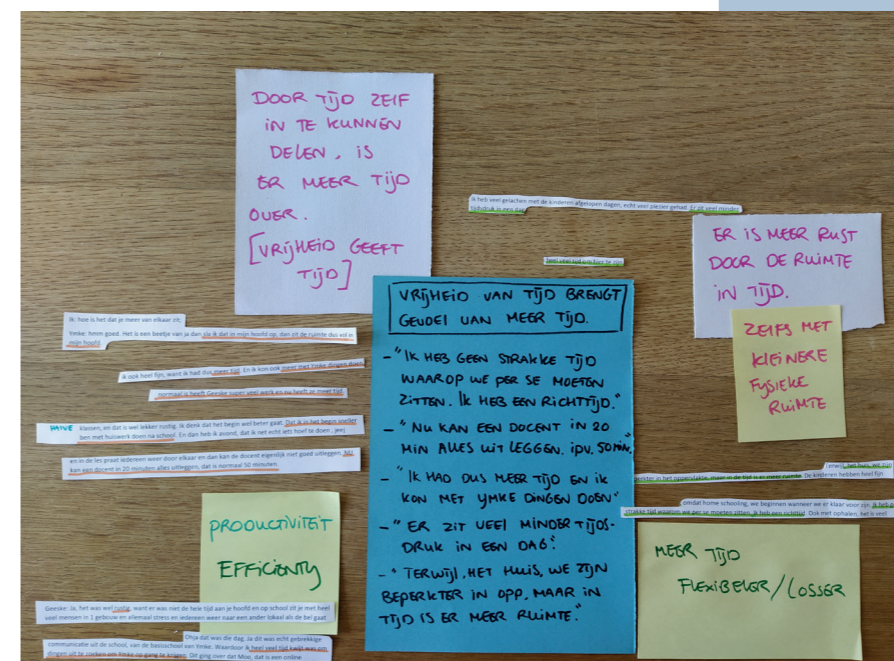 DOOR TIJD ZELF
IN TE KUNNEN
DELEN, IS
ER MEER TIJD
OVER.
[VRIJHEID GEEFT
TIJD]
Ik heb veel gelachen met de kinderen afgelopen dagen, echt veel plezier gehad. Er zit veel minder
tijdsdruk in een dag
heel veel tijd om hier te zijn
ER IS MEER RUST
DOOR DE RUIMTE
IN TIJD.
ZELFS MET
KLEINERE
FYSIEKE
RUIMTE
VRIJHEID VAN TIJD BRENGT
GEVOEL VAN MEER TIJD.
- "IK HEB GEEN STRAKKE TIJD
WAAROP WE PER SE MOETEN
ZITTEN. IK HEB EEN RICHTTIJD."
- "NU KAN EEN DOCENT IN 20
MIN ALLES UIT LEGGEN. IPV. 50MIN."
- "IK HAD DUS MEER TIJD EN IK
KON MET YMKE DINGEN DOEN"
- "ER ZIT VEEL MINDER TIJDS-
DRUK IN EEN DAG".
- "TERWIJL, HET HUIS, WE ZIJN
BEPERKTER IN OPP, MAAR IN
TIJD IS ER MEER RUIMTE."
Ik: hoe is het dat je meer van elkaar zit.
Ymke: hmm goed. Het is een beetje van ja dan sla ik dat in mijn hoofd op, dan zit de ruimte dus vol in
mijn hoofd.
ik ook heel fijn, want ik had dus meer tijd. En ik kon ook meer met Ymke dingen doen
normaal is heeft Geeske super veel werk en nu heeft ze meer tijd
klassen, en dat is wel lekker rustig. Ik denk dat het begin wel beter gaat. Dat ik in het begin sneller
ben met huiswerk doen na school. En dan heb ik avond, dat ik net echt iets hoef te doen, jeej
en in de les praat iedereen weer door elkaar en dan kan de docent eigenlijk niet goed uitleggen. Nu
kan een docent in 20 minuten alles uitleggen, dat is normaal 50 minuten.
PRODUCTIVITEIT
EFFICIENTY
Terwijl, het huis, we zijn
beperkter in het oppervlakte, maar in de tijd is er meer ruimte. De kinderen hebben heel fijn
omdat home schooling, we beginnen wanneer we er klaar voor zijn. Ik heb g
strakke tijd waarom we per se moeten zitten, ik heb een richttijd. Ook met ophalen, het is veel
MEER TIJD
FLEXIBELER/LOSSER
Geeske: Ja, het was wel rustig, want er was niet de hele tijd aan je hoofd en op school zit je met heel
veel mensen in 1 gebouw en allemaal stress en iedereen weer naar een ander lokaal als de bel gaat
Ohja dat was die dag. Ja dit was echt gebrekkige
communicatie uit de school, van de basisschool van Ymke. Waardoor ik heel veel tijd kwijt was om
dingen uit te zoeken om Ymke op gang te krijgen. Dit ging over dat Moo, dat is een online